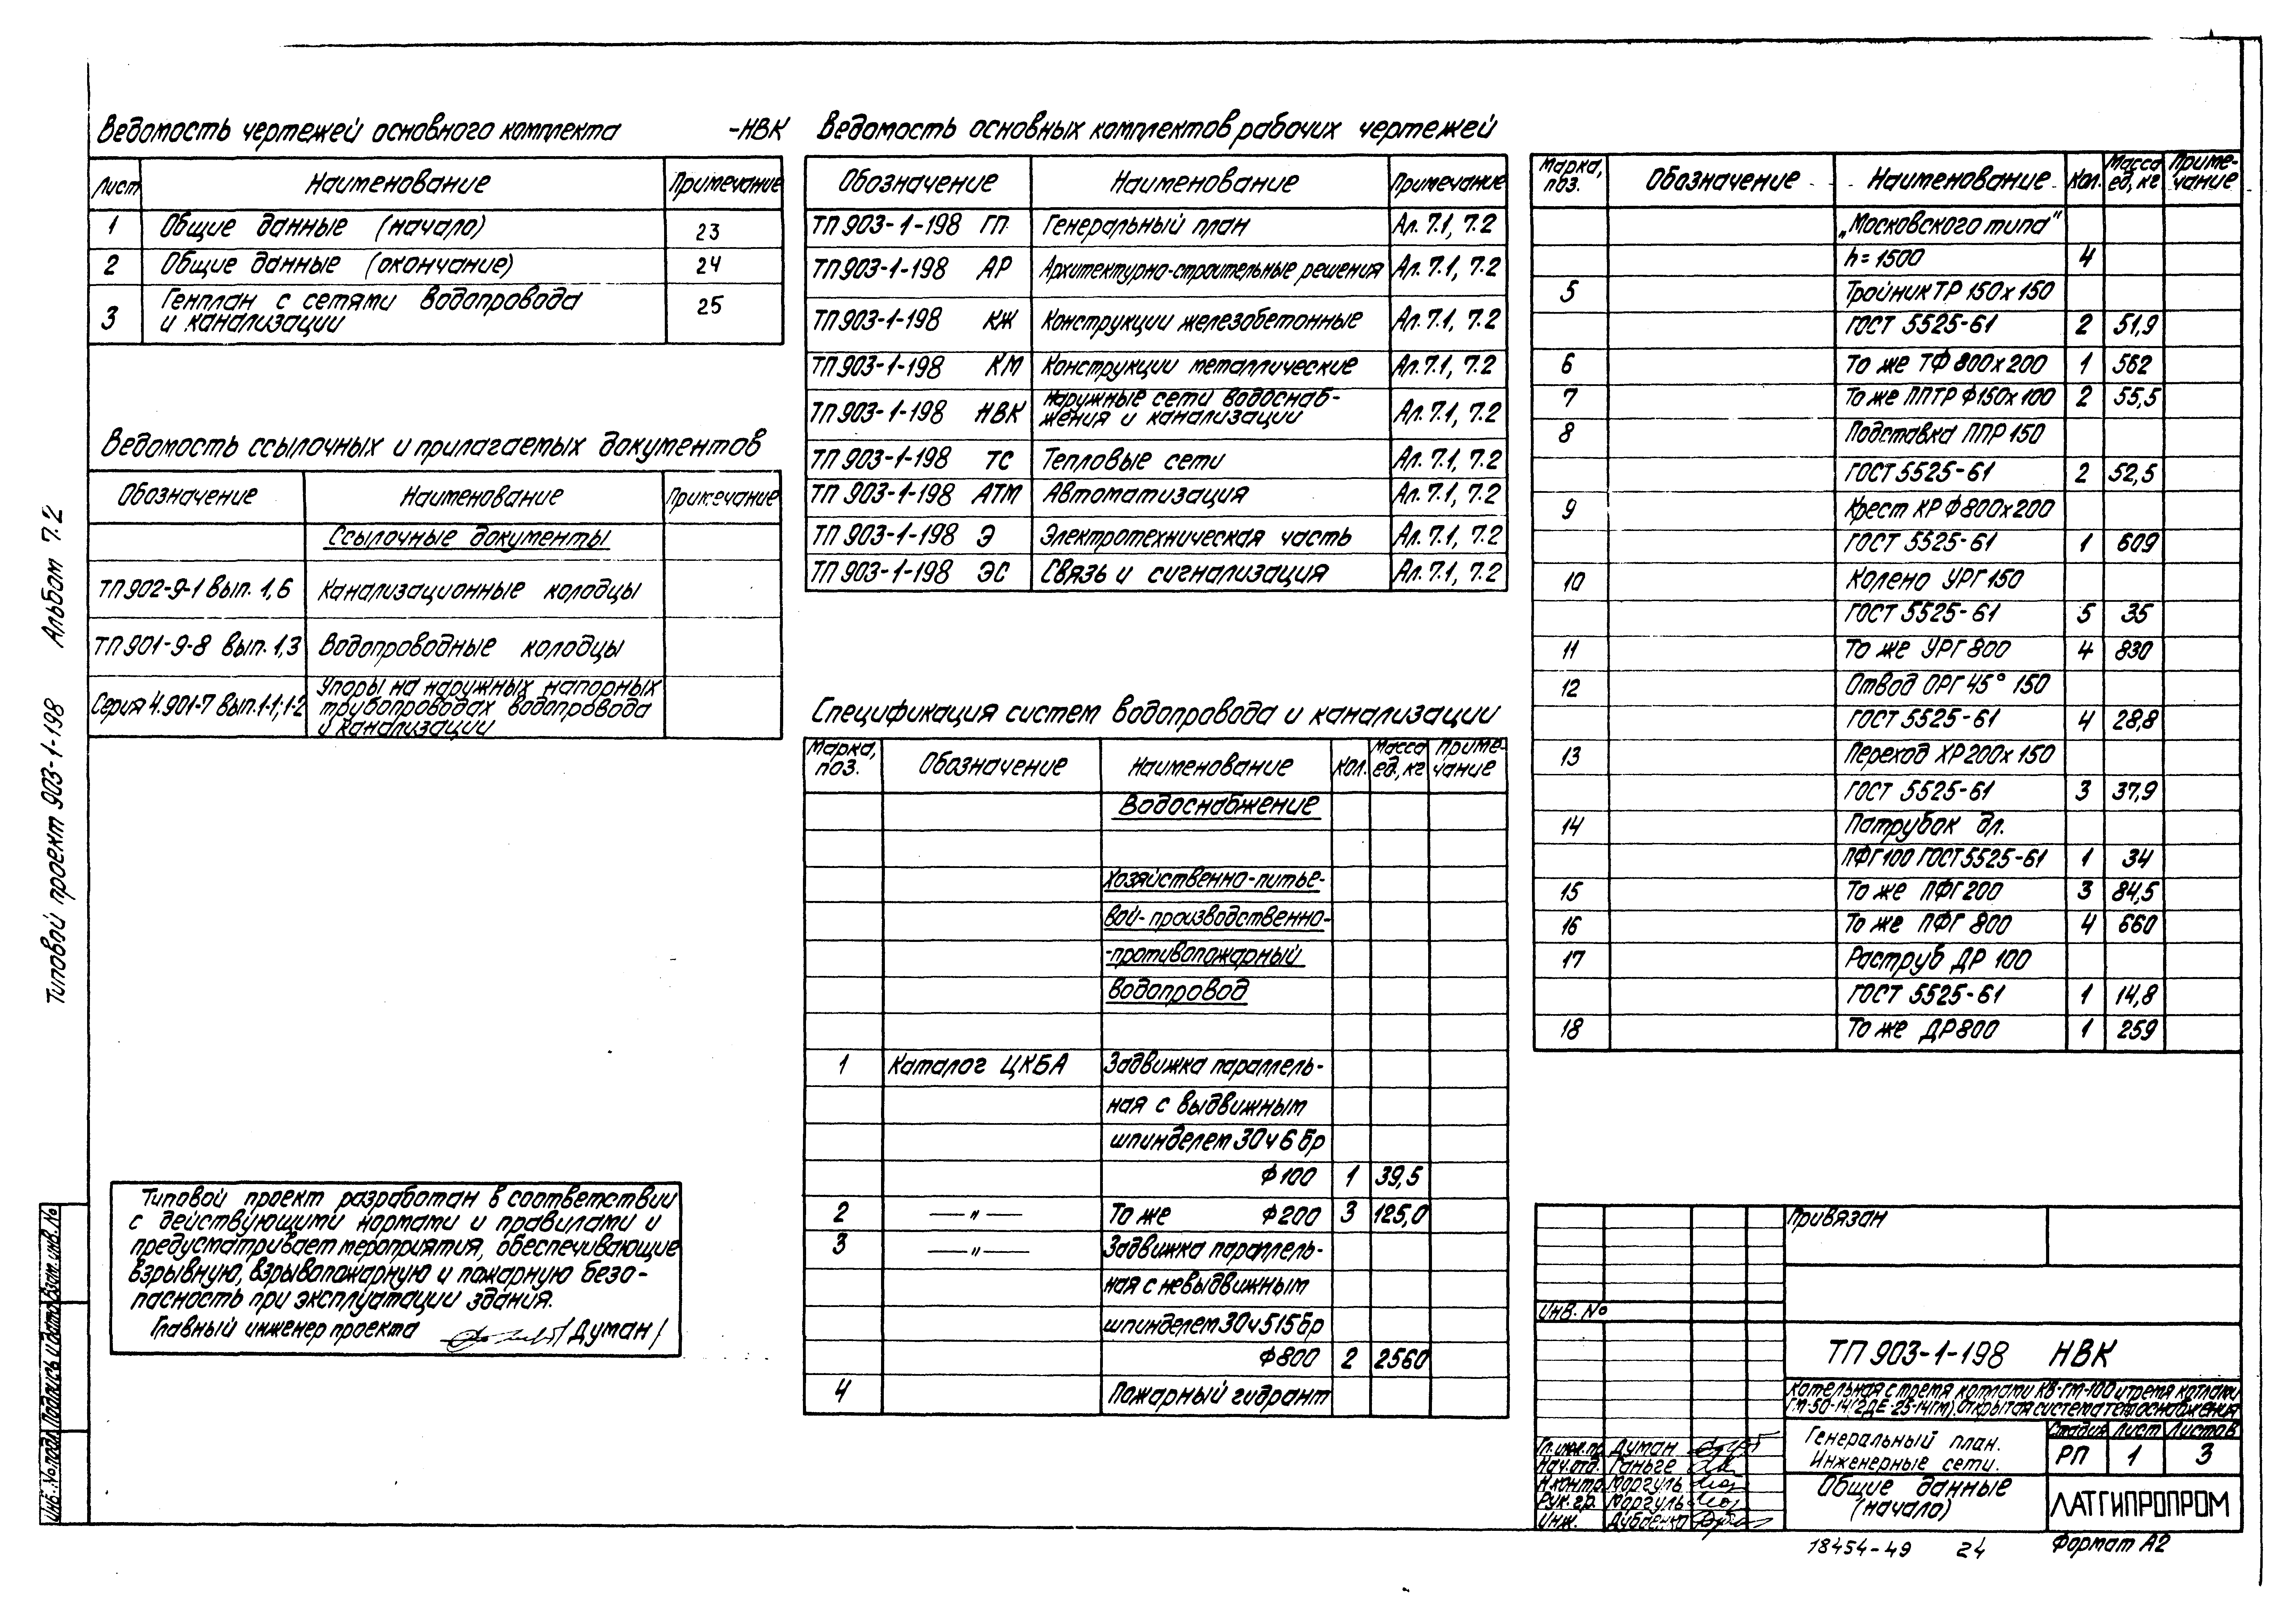 Типовой проект 903-1-198 Альбом 7.2
Ведомость чертежей основного комплекта -НВК
Лист Наименование Примечание
1 Общие данные (начало) 23
2 Общие данные (окончание) 24
3 Генплан с сетями водопровода
и канализации 25
Ведомость ссылочных и прилагаемых документов
Обозначение Наименование Примечание
Ссылочные документы
ТП 902-9-1 вып. 1,6 Канализационные колодцы
ТП 901-9-8 вып. 1,3 Водопроводные колодцы
Серия 4.901-7 вып.1-1;1-2 Упоры на наружных напорных
трубопроводах водопровода
и канализации
Типовой проект разработан в соответствии
с действующими нормами и правилами и
предусматривает мероприятия, обеспечивающие
взрывную, взрывопожарную и пожарную безо-
пасность при эксплуатации здания.
Главный инженер проекта /Думан/
Ведомость основных комплектов рабочих чертежей
Обозначение Наименование Примечание
ТП 903-1-198 ГП Генеральный план Ал. 7.1, 7.2
ТП 903-1-198 АР Архитектурно-строительные решения Ал. 7.1, 7.2
ТП 903-1-198 КЖ Конструкции железобетонные Ал. 7.1, 7.2
ТП 903-1-198 КМ Конструкции металлические Ал. 7.1, 7.2
ТП 903-1-198 НВК Наружные сети водоснаб-
жения и канализации Ал. 7.1, 7.2
ТП 903-1-198 ТС Тепловые сети Ал. 7.1, 7.2
ТП 903-1-198 АТМ Автоматизация Ал. 7.1, 7.2
ТП 903-1-198 Э Электротехническая часть Ал. 7.1, 7.2
ТП 903-1-198 ЭС Связь и сигнализация Ал. 7.1, 7.2
Спецификация систем водопровода и канализации
Марка, поз. Обозначение Наименование Кол. Масса ед., кг Приме-чание
Водоснабжение
Хозяйственно-питье-
вой-производственно-
-противопожарный
водопровод
1 Каталог ЦКБА Задвижка параллель-
ная с выдвижным
шпинделем 30ч6бр
Ф100 1 39,5
2 —"— То же Ф200 3 125,0
3 —"— Задвижка параллель-
ная с невыдвижным
шпинделем 30ч515бр
Ф800 2 2560
4 Пожарный гидрант
Марка, поз. Обозначение Наименование Кол. Масса ед., кг Приме-чание
„Московского типа"
h=1500 4
5 Тройник ТР 150х150
ГОСТ 5525-61 2 51,9
6 То же ТФ 800х200 1 562
7 То же ППТР Ф150х100 2 55,5
8 Подставка ППР 150
ГОСТ 5525-61 2 52,5
9 Крест КР Ф800х200
ГОСТ 5525-61 1 609
10 Колено УРГ 150
ГОСТ 5525-61 5 35
11 То же УРГ 800 4 830
12 Отвод ОРГ 45° 150
ГОСТ 5525-61 4 28,8
13 Переход ХР 200х150
ГОСТ 5525-61 3 37,9
14 Патрубок дл.
ПФГ 100 ГОСТ 5525-61 1 34
15 То же ПФГ 200 3 84,5
16 То же ПФГ 800 4 660
17 Раструб ДР 100
ГОСТ 5525-61 1 14,8
18 То же ДР 800 1 259
Привязан
Инв. №
ТП 903-1-198 НВК
Котельная с тремя котлами КВ-ГМ-100 и тремя котлами
ГМ-50-14(2ДЕ-25-14ГМ). Открытая система теплоснабжения
Гл. инж. пр. Думан
Нач. отд. Ганьге
Н.контр. Моргуль
Рук. гр. Моргуль
Инж.
Генеральный план.
Инженерные сети.
Стадия Лист Листов
РП 1 3
Общие данные
(начало)
ЛАТГИПРОПРОМ
18454-49 24
Формат А2
Инв. № подл. Подпись и дата Взам. инв. №